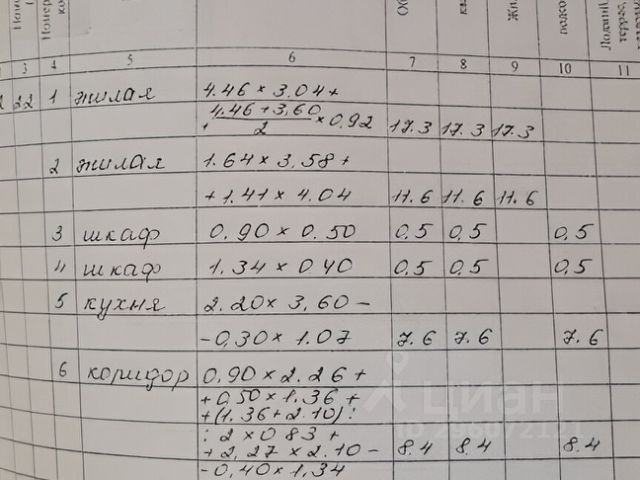 Номер
3 4 5 6 7 8 9 10 11
2 22 1 жилая 4.46 × 3.04 +
+ 4.46 + 3,60 / 2 × 0,92 17.3 17.3 17.3
2 жилая 1.64 × 3,58 +
+ 1.41 × 4.04 11.6 11.6 11.6
3 шкаф 0.90 × 0.50 0,5 0,5 0,5
4 шкаф 1.34 × 0,40 0,5 0,5 0,5
5 кухня 2.20 × 3,60 -
- 0,30 × 1.07 7.6 7.6 7.6
6 коридор 0,90 × 2.26 +
+ 0,50 × 1.36 +
+ (1.36 + 2.10) :
: 2 × 0,83 +
+ 2,27 × 2.10 - 8.4 8.4 8.4
- 0,40 × 1,34
циан